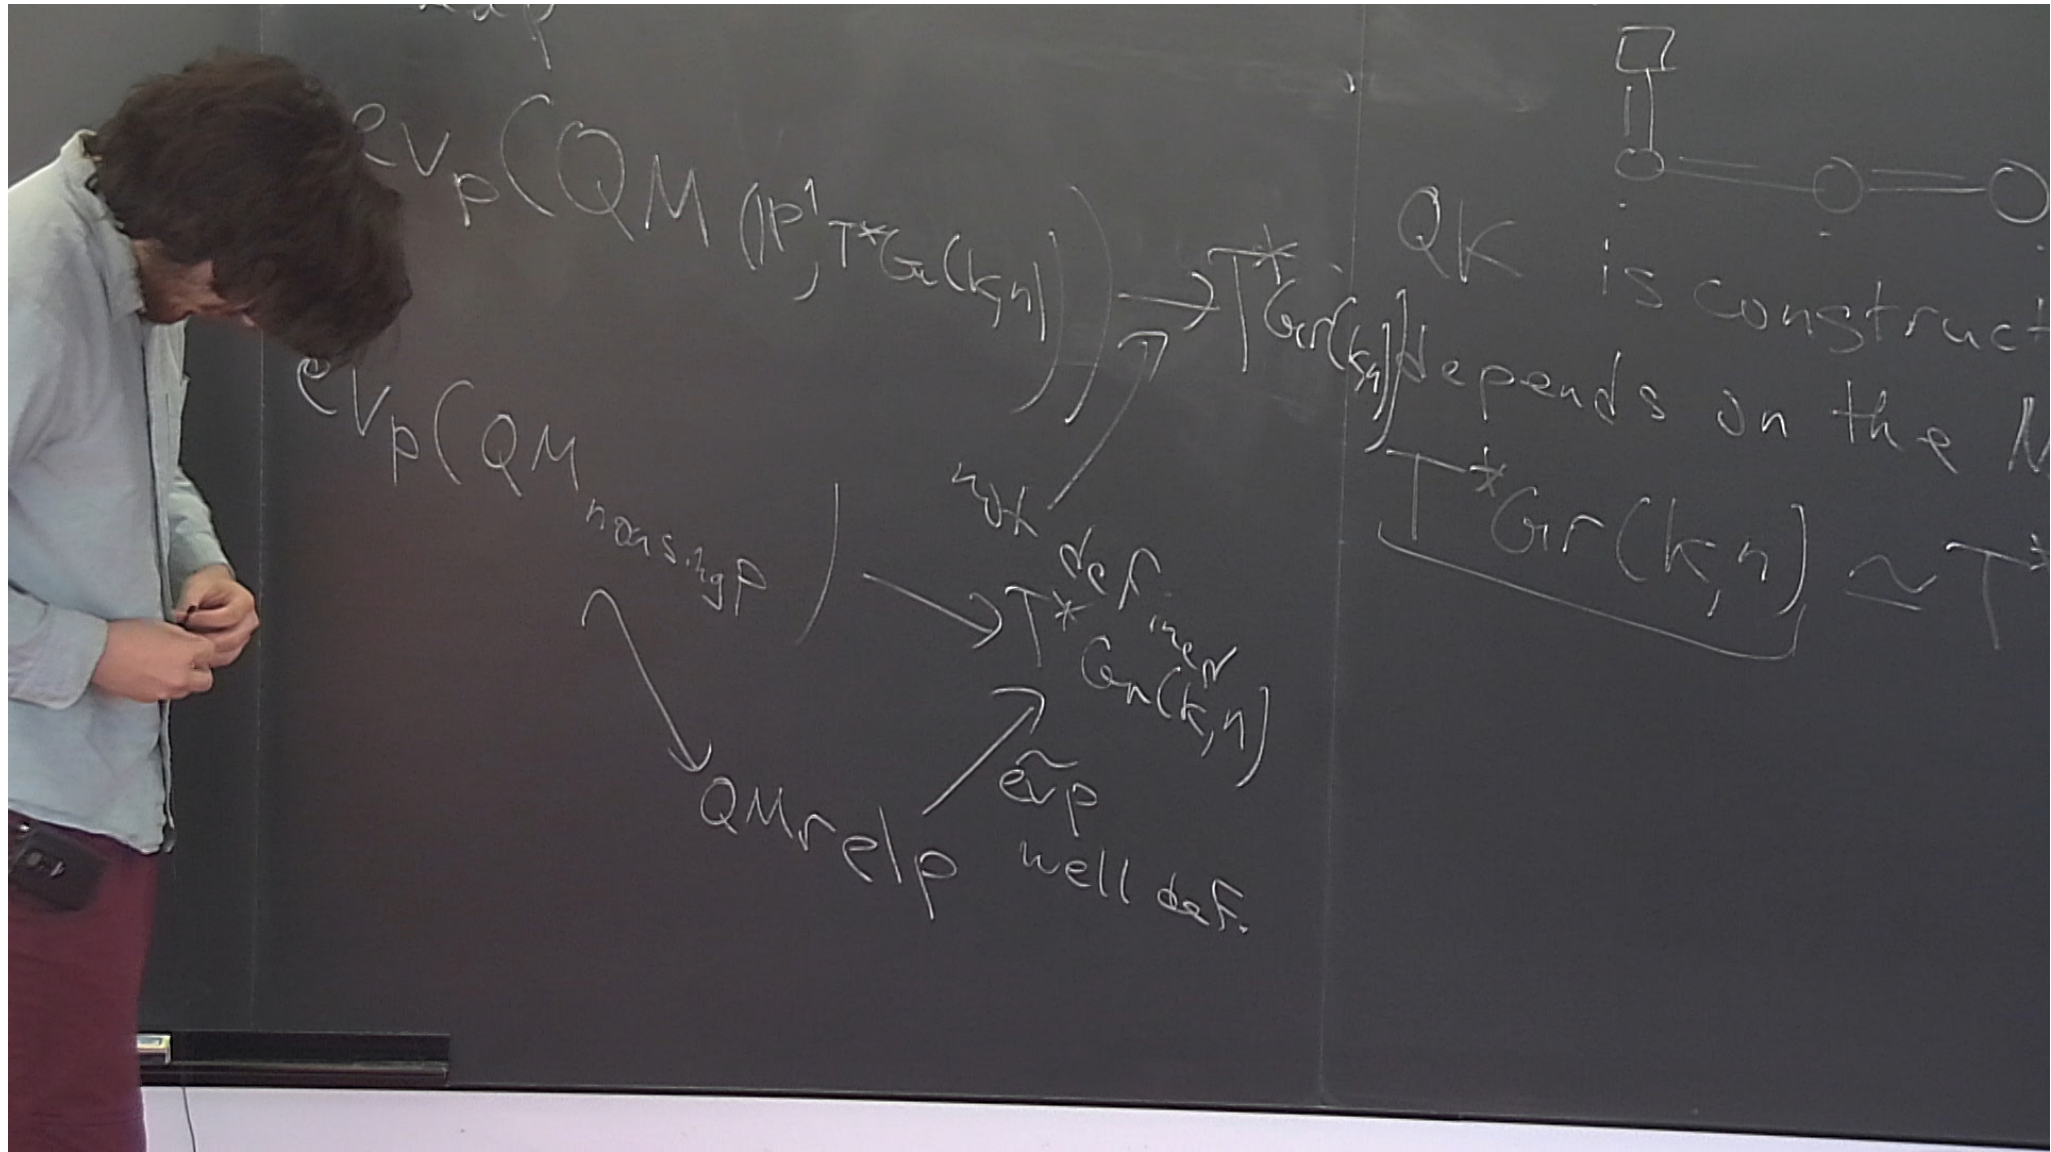 ev_p(QM(P^1, T*Gr(k,n))) → T*Gr(k,n)
not defined
ev_p(QM_nonsing p) → T*Gr(k,n)
ẽv_p
QM rel p well def.
QK is construct
depends on the
T*Gr(k,n) ≃ T*